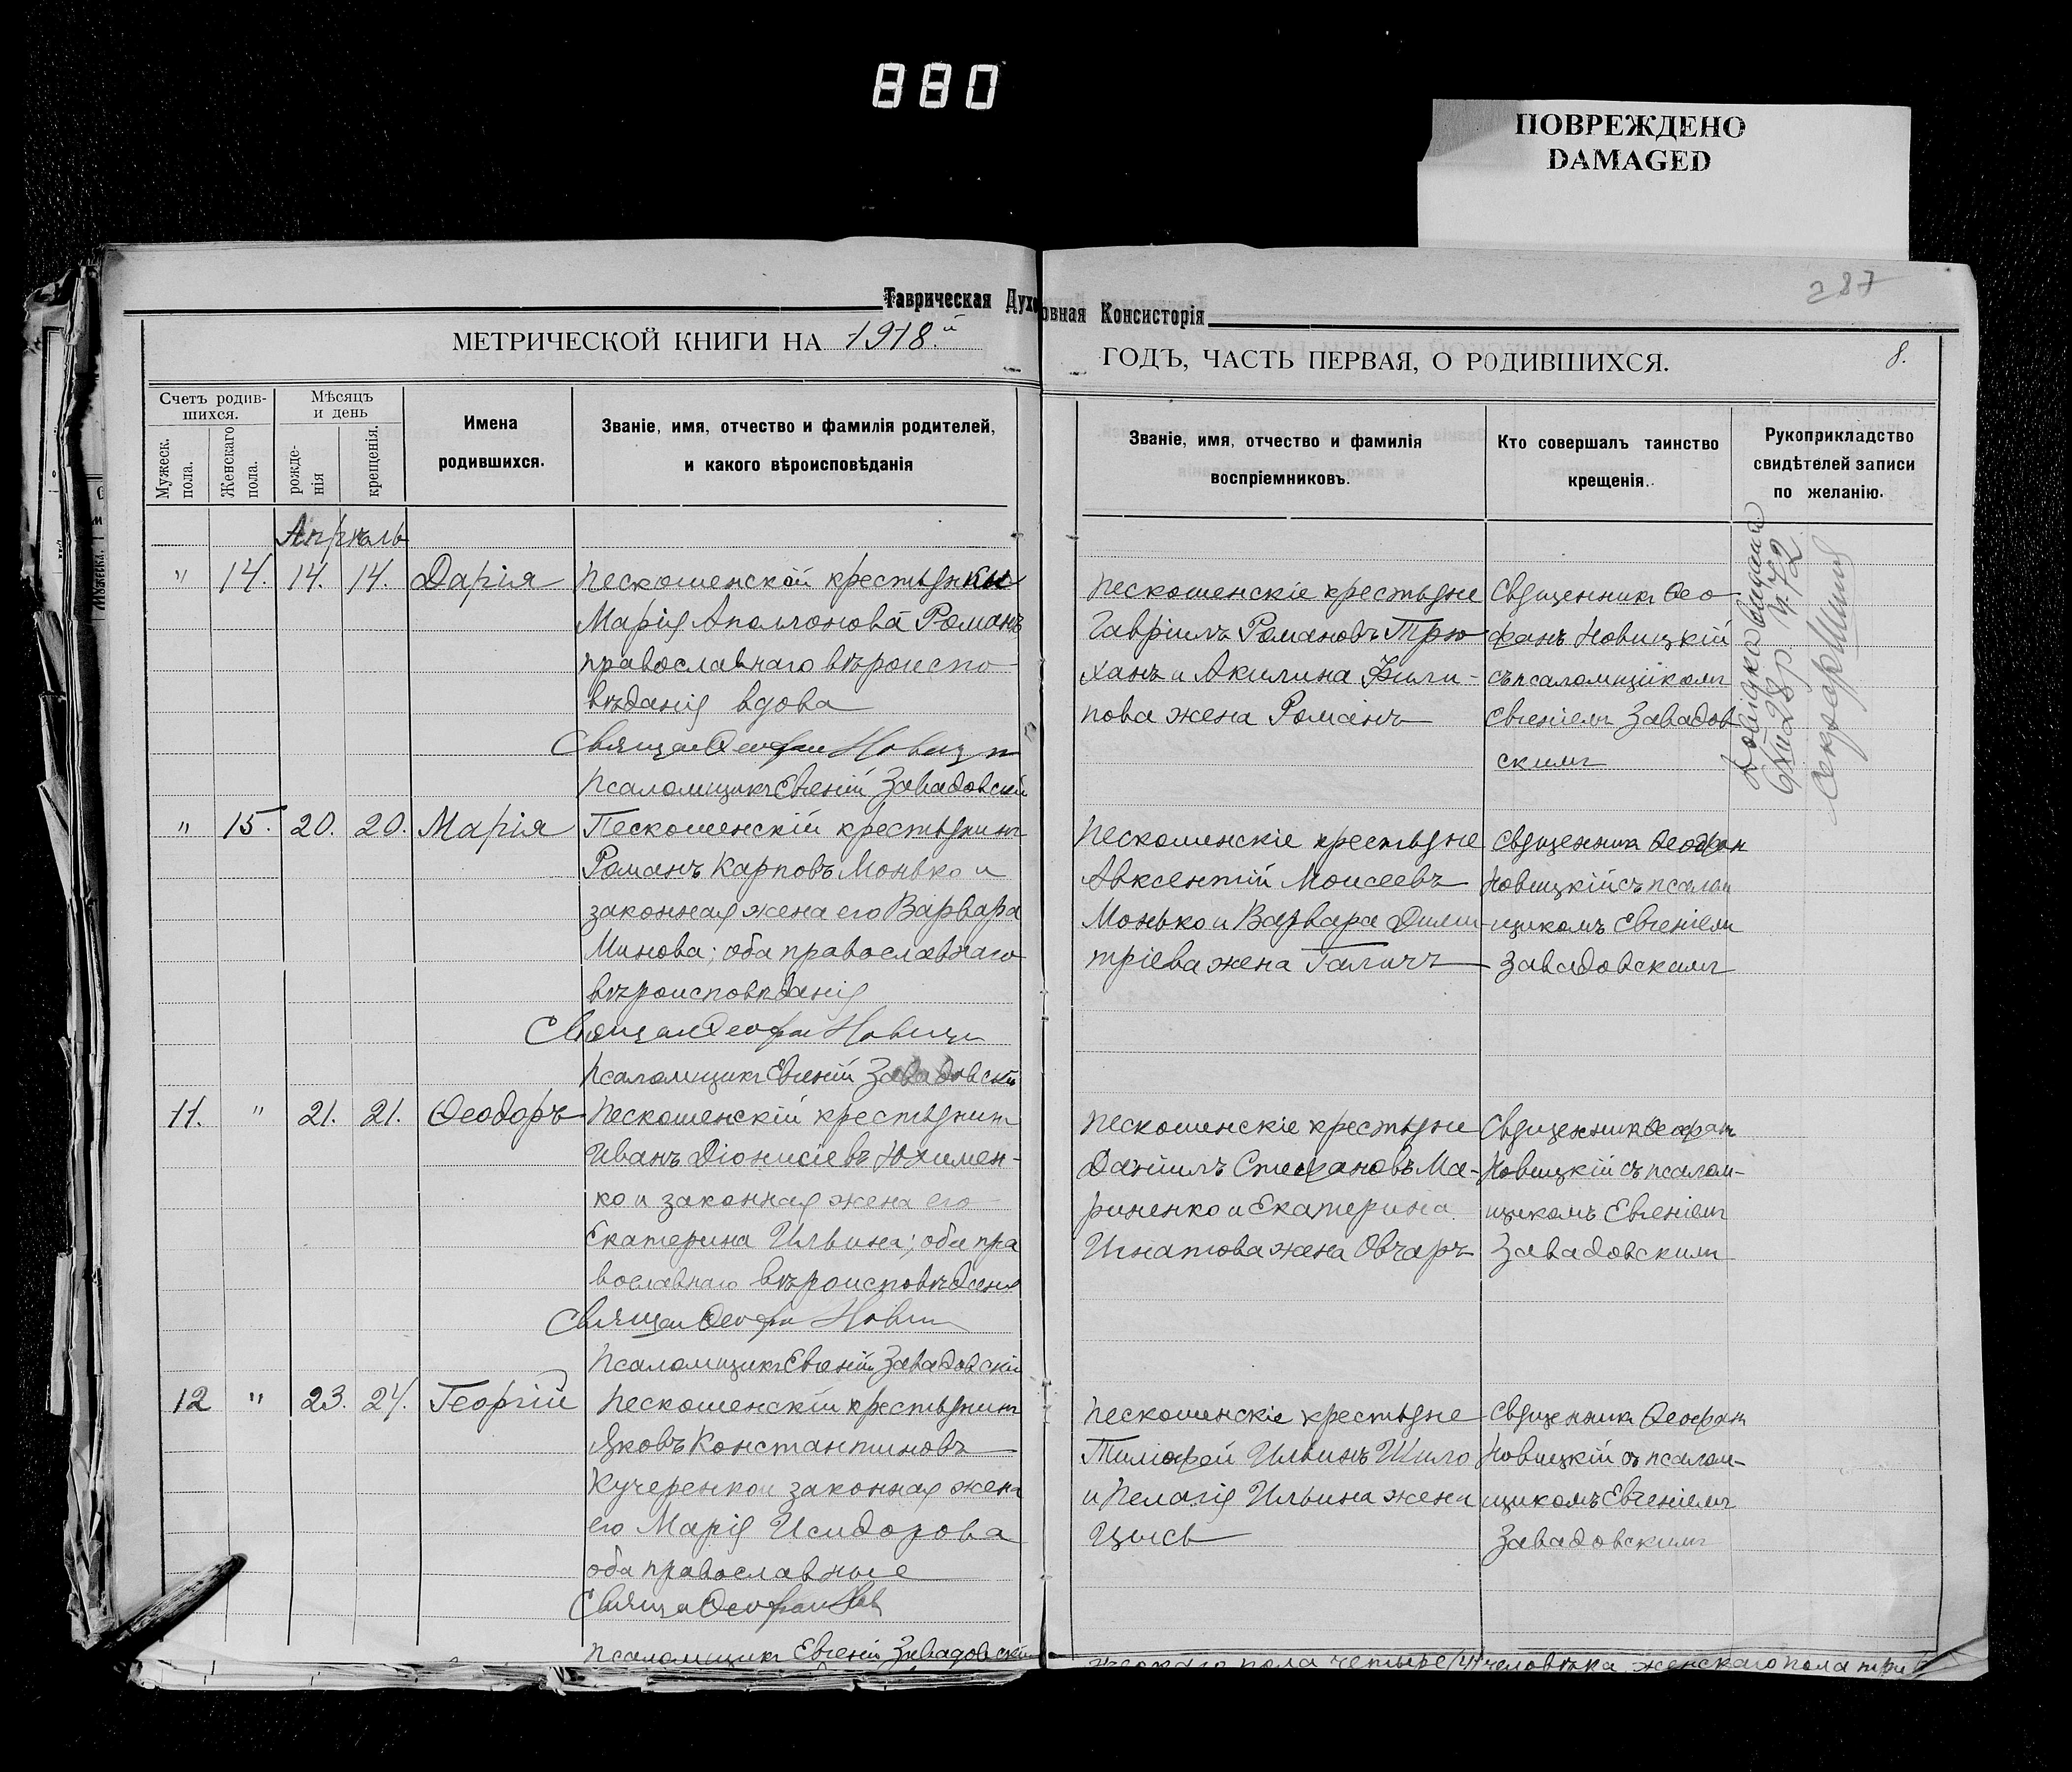 880
ПОВРЕЖДЕНО
DAMAGED
287
Таврическая Духовная Консисторія
МЕТРИЧЕСКОЙ КНИГИ НА 1918.й
ГОДЪ, ЧАСТЬ ПЕРВАЯ, О РОДИВШИХСЯ.
8.
Счетъ родив-
шихся.
Мужеск.
пола.
Женскаго
пола.
Мѣсяцъ
и день
рожде-
нія
крещенія.
Имена
родившихся.
Званіе, имя, отчество и фамилія родителей,
и какого вѣроисповѣданія
Званіе, имя, отчество и фамилія
воспріемниковъ.
Кто совершалъ таинство
крещенія.
Рукоприкладство
свидѣтелей записи
по желанію.
Апрѣль
" 14. 14. 14. Дарія
Пескошенской крестьянки
Марія Аполлонова Романъ
православнаго вѣроиспо-
вѣданія вдова
Псаломщикъ Евгеній Завадовскій
Пескошенскіе крестьяне
Гавріилъ Романовъ Трю
ханъ и Акилина Фили-
пова жена Романъ
Священникъ Ѳео
фанъ Новицкій
съ псаломщикомъ
Евгеніемъ Завадов
скимъ
Довідка видана
6/XII 28 р. № 72
" 15. 20. 20. Марія
Пескошенскій крестьянинъ
Романъ Карповъ Монько и
законная жена его Варвара
Минова; оба православнаго
вѣроисповѣданія
Псаломщикъ Евгеній Завадовскій
Пескошенскіе крестьяне
Авксентій Моисеевъ
Монько и Варвара Дими
тріева жена Галичъ
Священникъ Ѳеофан
Новицкій съ псалом
щикомъ Евгеніем
Завадовскимъ
11. " 21. 21. Ѳеодоръ
Пескошенскій крестьянинъ
Иванъ Діонисіевъ Юхимен-
ко и законная жена его
Екатерина Ильина; оба пра
вославнаго вѣроисповѣданія
Псаломщикъ Евгеній Завадовскій
Пескошенскіе крестьяне
Даніилъ Стефановъ Ма-
риненко и Екатерина
Игнатова жена Овчаръ
Священникъ Ѳеофан
Новицкій съ псалом-
щикомъ Евгеніемъ
Завадовскимъ
12 " 23. 24. Георгій
Пескошенскій крестьянинъ
Яковъ Константиновъ
Кучеренко и законная жена
его Марія Исидорова
оба православные
Псаломщикъ Евгеній Завадовскій
Пескошенскіе крестьяне
Тимофей Ильинъ Шило
и Пелагія Ильина жена
Цысь
Священникъ Ѳеофан
Новицкій съ псалом-
щикомъ Евгеніемъ
Завадовскимъ
пола четыре (4) человѣка, женскаго пола три